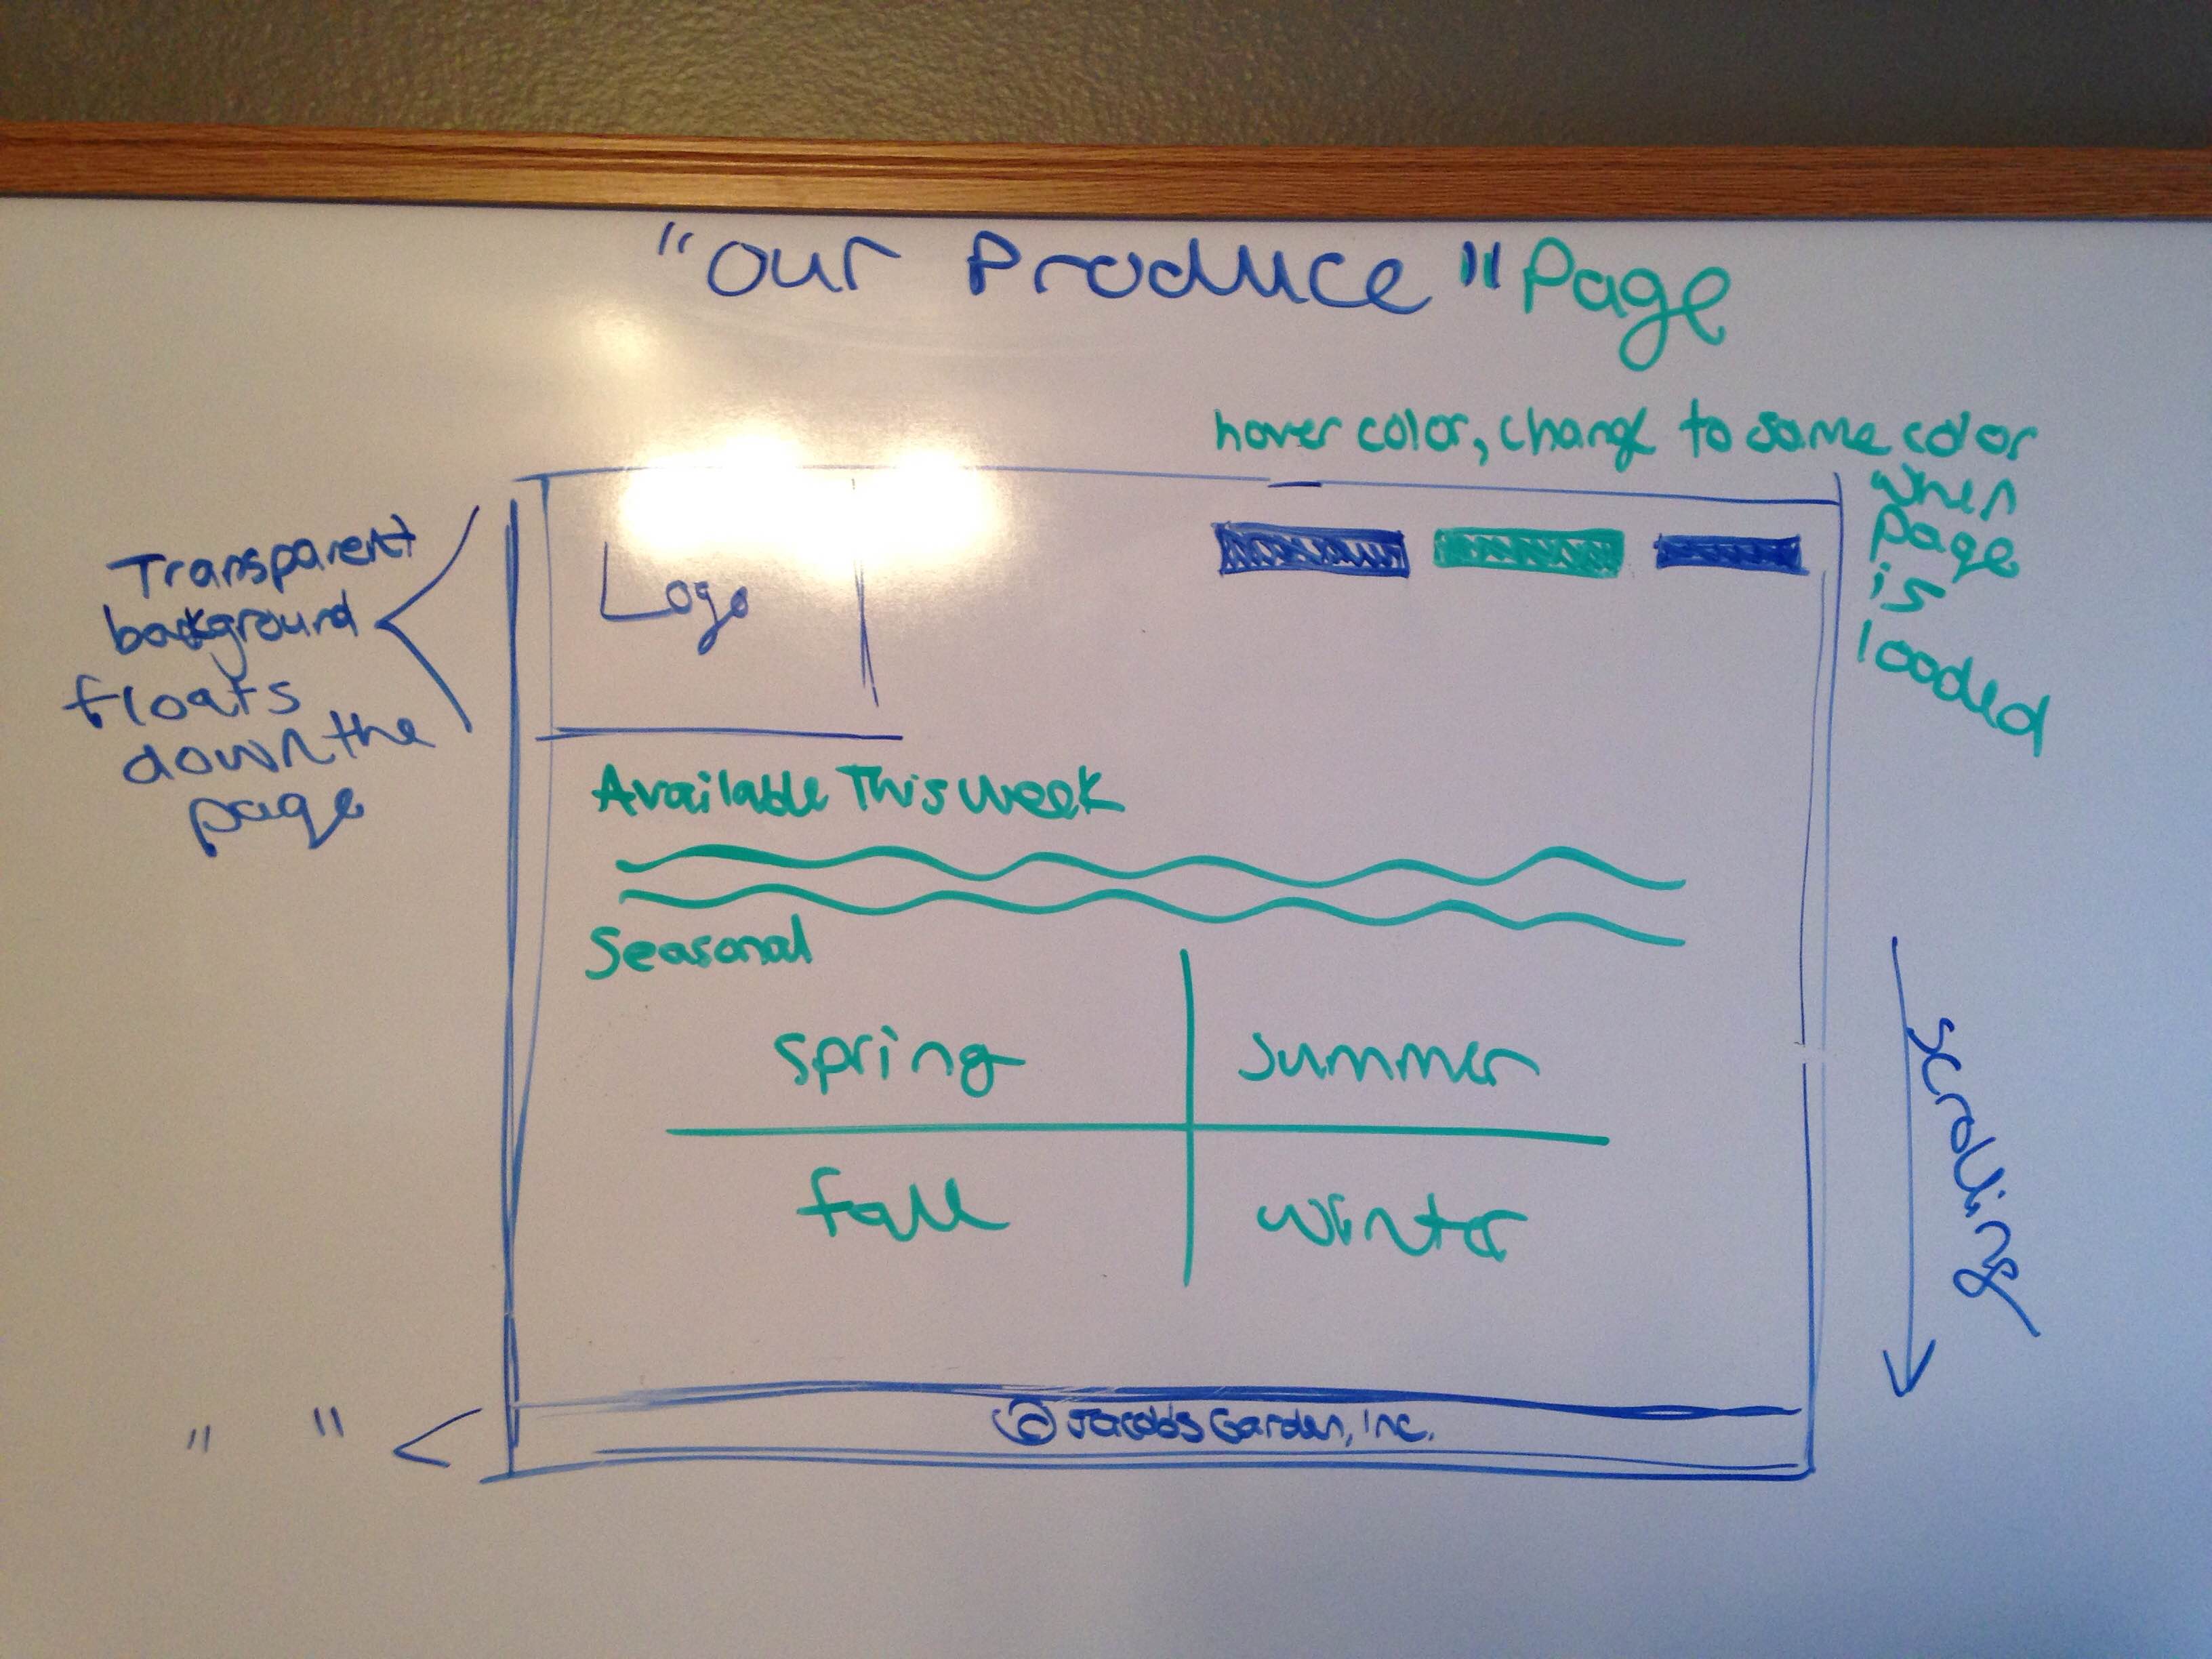 "Our Produce" Page
hover color, change to same color
when
page
is
loaded
Transparent
background
floats
down the
page
Logo
Available This Week
Seasonal
Spring
Summer
Fall
Winter
Scrolling
" "
© Jacobs Garden, Inc.